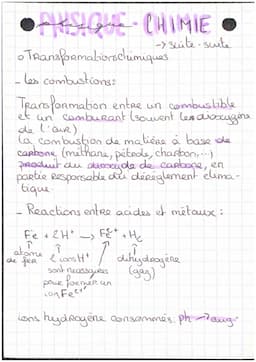 PHYSIQUE - CHIMIE
→ suite - suite
o Transformations chimiques
- Les combustions :
Transformation entre un combustible
et un comburant (souvent le dioxygène
de l'air)
La combustion de matière à base de
carbone (méthane, pétrole, charbon, ...)
produit du dioxyde de carbone, en
partie responsable du dérèglement clima-
tique.
- Réactions entre acides et métaux :
Fe + 2H⁺ → Fe²⁺ + H₂
atome de fer
2 ions H⁺ sont nécessaires pour former un ion Fe²⁺
dihydrogène (gaz)
ions hydrogène consommés. ph → aug.